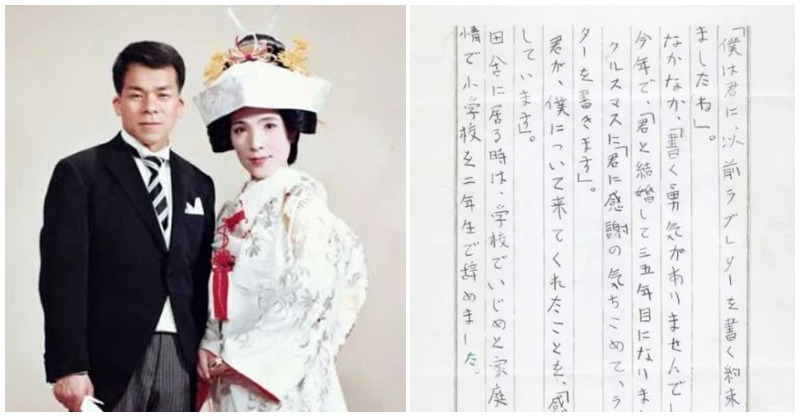 「僕は君に、以前ラブレターを書く約束
ましたね」。
なかなか、「書く勇気がありませんでし
今年で、「君と結婚して三五年目になりまし
クルスマスに「君に感謝の気ちこめて、ラ
ターを書きます」。
君が、僕について来てくれたことを、「感
しています」。
田舎に居る時は、学校でいじめと家庭
情で小学校を二年生で辞めました。